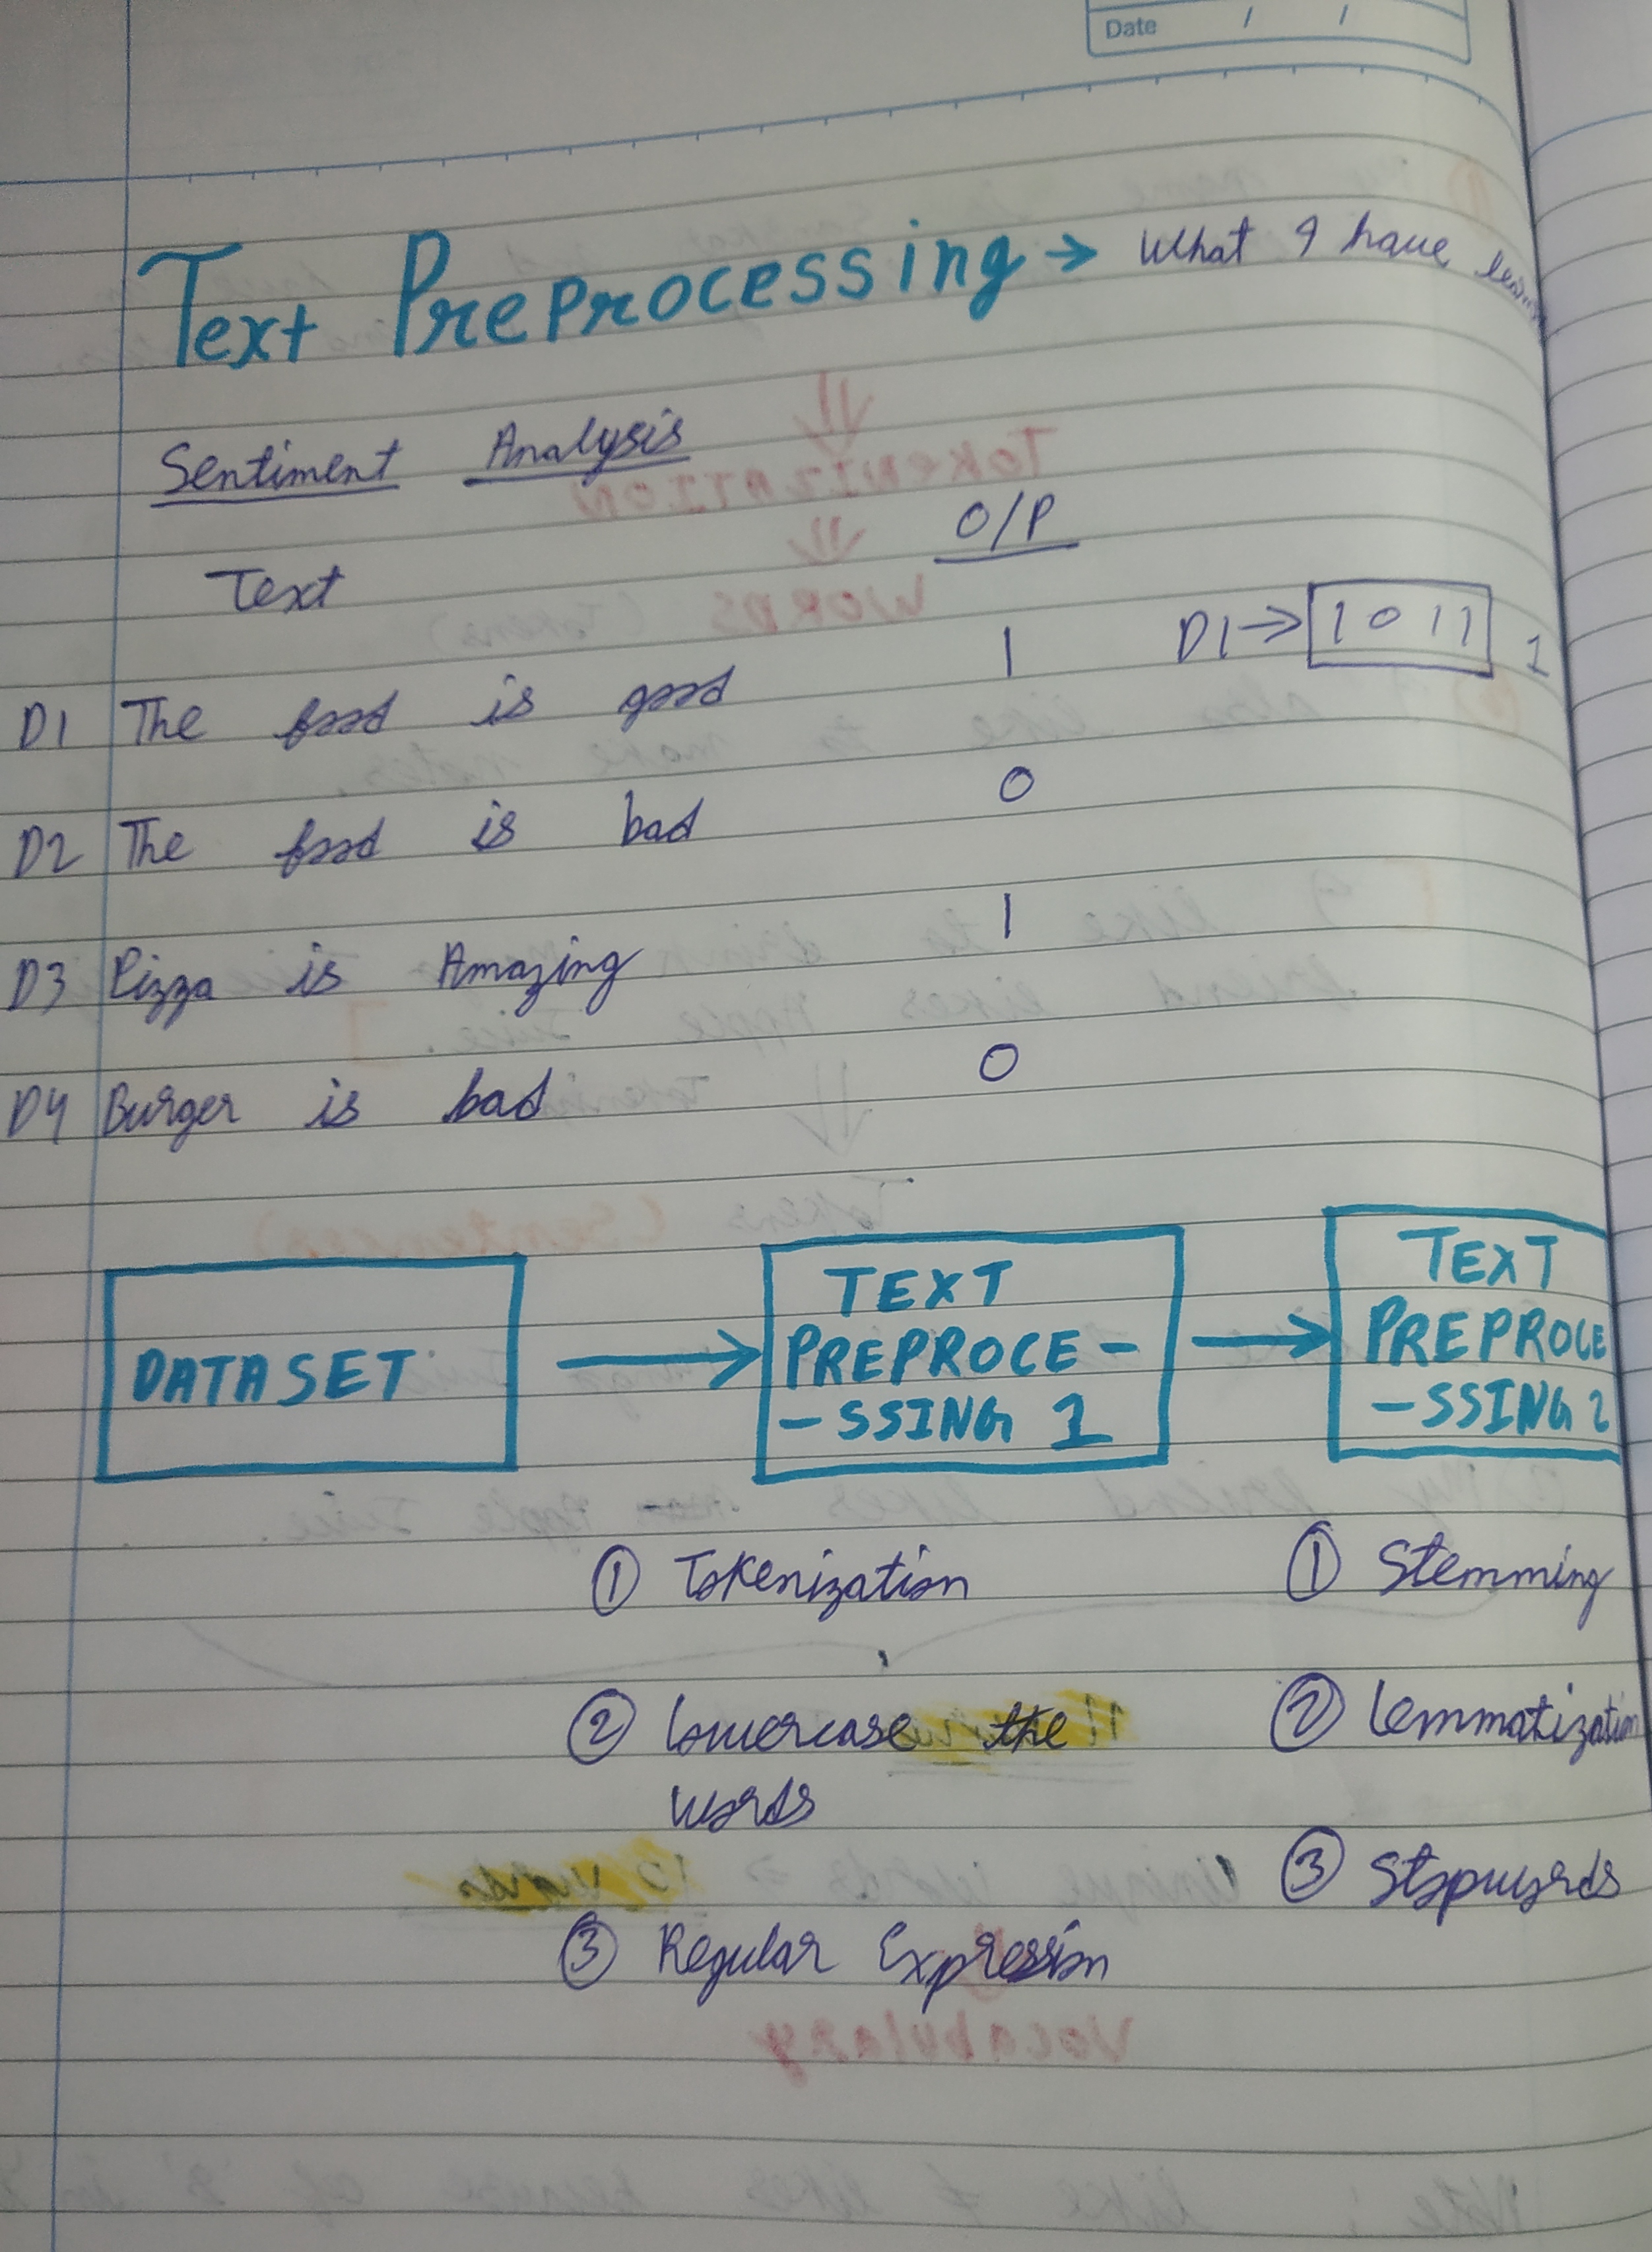 Date / /
Text Preprocessing → What I have
Sentiment Analysis
Text O/P
D1 The food is good 1 D1 → 1 0 1 1 1
D2 The food is bad 0
D3 Pizza is Amazing 1
D4 Burger is bad 0
DATASET → TEXT PREPROCE- -SSING 1 → TEXT PREPROCE -SSING 2
① Tokenization ① Stemming
② Lowercase the ② Lemmatization
words
③ Stopwords
③ Regular Expression